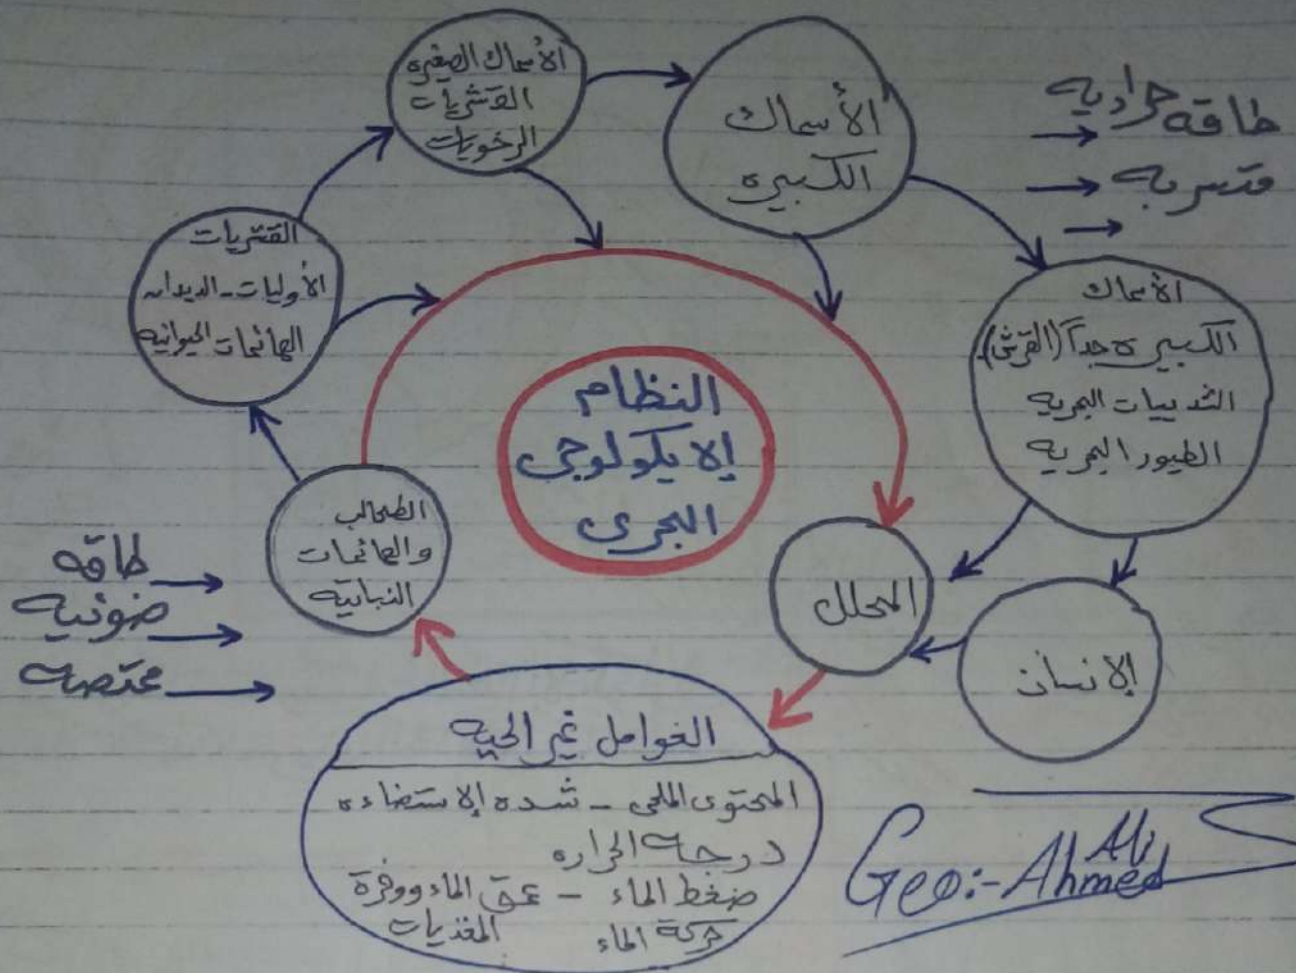 الأسماك الصغيره
القشريات
الرخويات
الأسماك
الكبيره
طاقه حراريه
متسربه
القشريات
الأوليات - الديدان
الهائمات الحيوانيه
الأسماك
الكبيره جداً (القرش)
الثدييات البحريه
الطيور البحريه
النظام
الإيكولوجى
البحرى
الطحالب
والهائمات
النباتيه
طاقه
ضوئيه
ممتصه
المحلل
الإنسان
العوامل غير الحيه
المحتوى الملحى - شده الإستضاءه
درجه الحراره
ضغط الماء - عمق الماء ووفرة
حركة الماء المغذيات
Geo:- Ahmed Ali